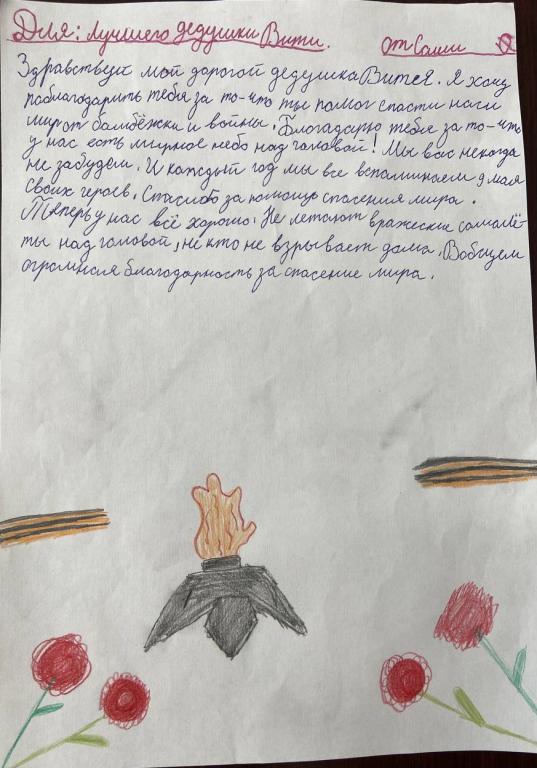 Для: Лучшего дедушки Вити. от Саши
Здравствуй мой дорогой дедушка Витя. Я хочу
поблагодарить тебя за то-что ты помог спасти наш
мир от бомбёжки и войны. Благадарю тебя за то-что
у нас есть мирное небо над галовой! Мы вас некогда
не забудем. И каждый год мы все вспоминаем 9 мая
своих героев. Спасибо за помощь спасения мира.
Теперь у нас всё хорошо. Не летают вражеские самалё-
ты над головой, не кто не взрывает дома. Вобщем
огромная благодарность за спасение мира.